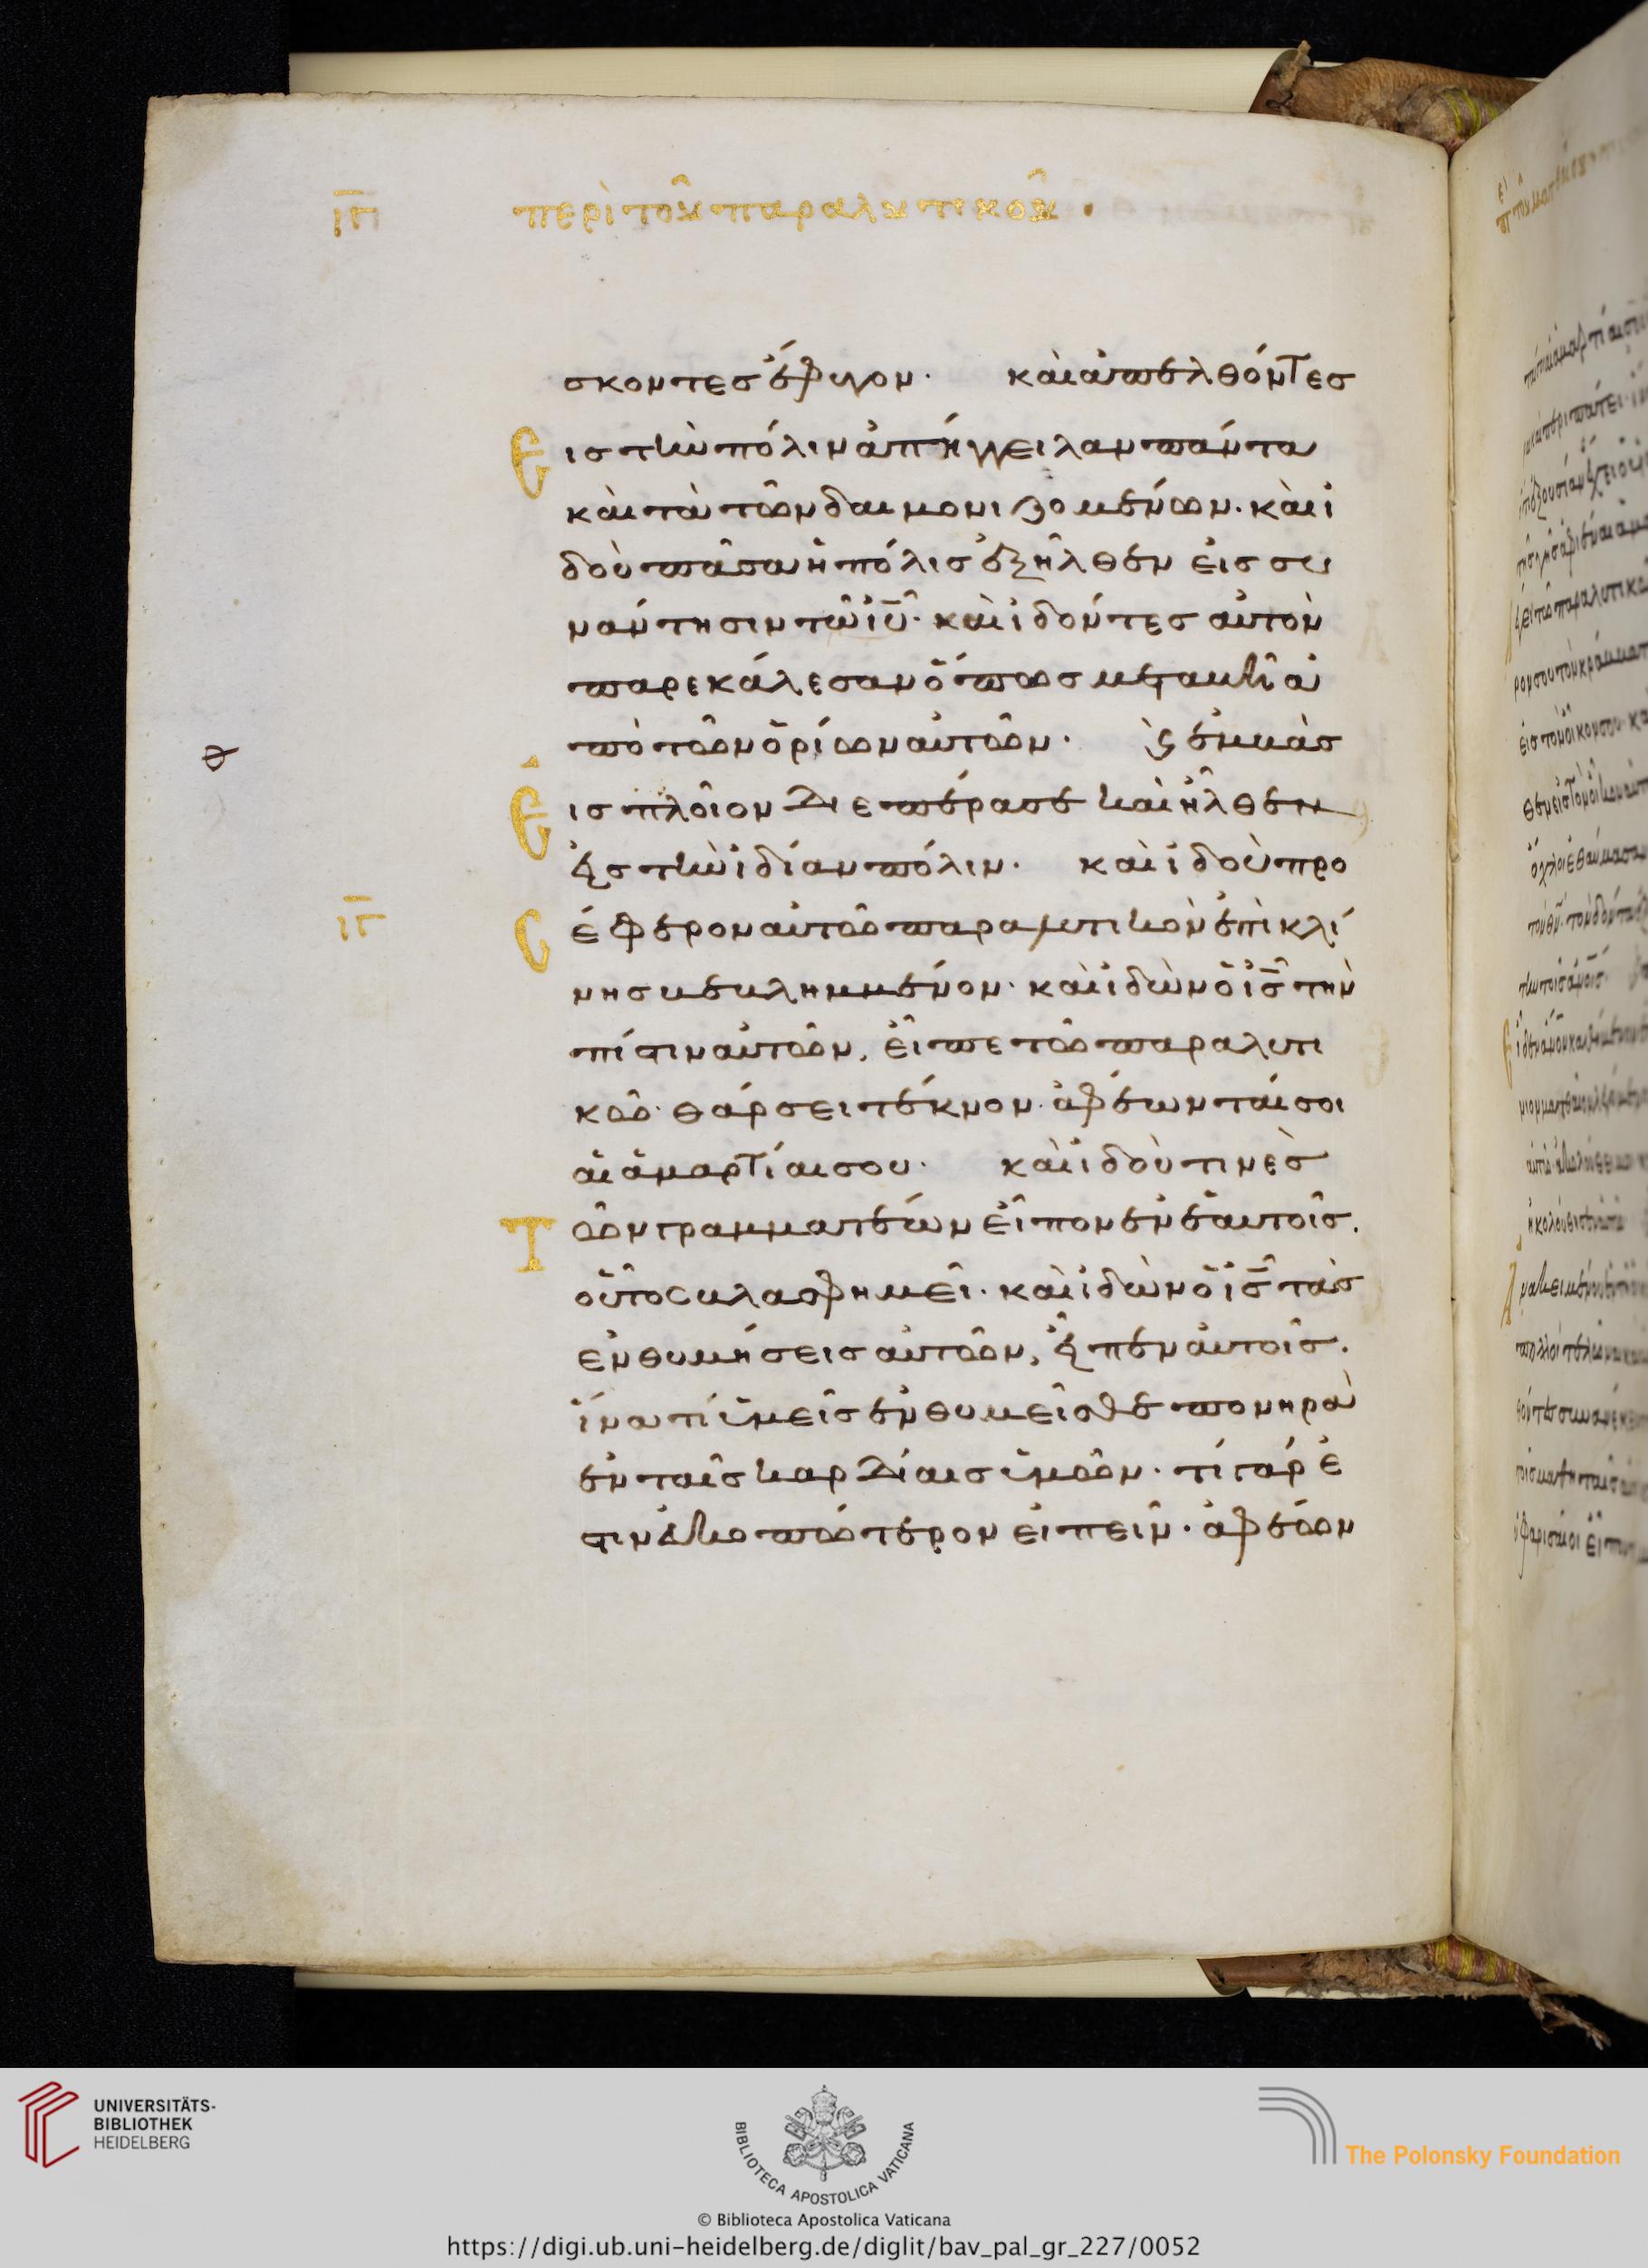 ιγ περὶ τοῦ παραλυτικοῦ.
σκοντες ἔφυγον· καὶ ἀπελθόντες
Εἰς τὴν πόλιν ἀπήγγειλαν πάντα
καὶ τὰ τῶν δαιμονιζομένων· καὶ ἰ
δοὺ πᾶσα ἡ πόλις ἐξῆλθεν εἰς συ
νάντησιν τῶ ἰῦ· καὶ ἰδόντες αὐτὸν
παρεκάλεσαν ὅπως μεταβῆ ἀ
πὸ τῶν ὁρίων αὐτῶν· ϛ ἐμβὰς
Εἰς πλοῖον διεπέρασε καὶ ἦλθεν
εἰς τὴν ἰδίαν πόλιν· καὶ ἰδοὺ προ
ιγ Σέφερον αὐτῶ παραλυτικὸν ἐπὶ κλί
νης βεβλημμένον· καὶ ἰδὼν ὁ ἰς τὴν
πίστιν αὐτῶν, εἶπε τῶ παραλυτι
κῶ· θάρσει τέκνον· ἀφέωνταί σοι
αἱ ἁμαρτίαι σου· καὶ ἰδού τινὲς
Τῶν γραμματέων εἶπον ἐν ἑαυτοῖς.
οὗτος βλασφημεῖ· καὶ ἰδὼν ὁ ἰς τὰς
ἐνθυμήσεις αὐτῶν, εἶπεν αὐτοῖς.
ἵνα τί ὑμεῖς ἐνθυμεῖσθε πονηρὰ
ἐν ταῖς καρδίαις ὑμῶν· τί γάρ ἐ
στιν εὐκοπώτερον εἰπεῖν· ἀφέων
UNIVERSITÄTS-
BIBLIOTHEK
HEIDELBERG
BIBLIOTECA APOSTOLICA VATICANA
The Polonsky Foundation
© Biblioteca Apostolica Vaticana
https://digi.ub.uni-heidelberg.de/diglit/bav_pal_gr_227/0052